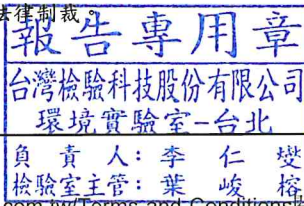 法律制裁。
報告專用章
台灣檢驗科技股份有限公司
環境實驗室-台北
負責人：李仁燮
檢驗室主管：葉峻榕
.com.tw/Terms and Conditions